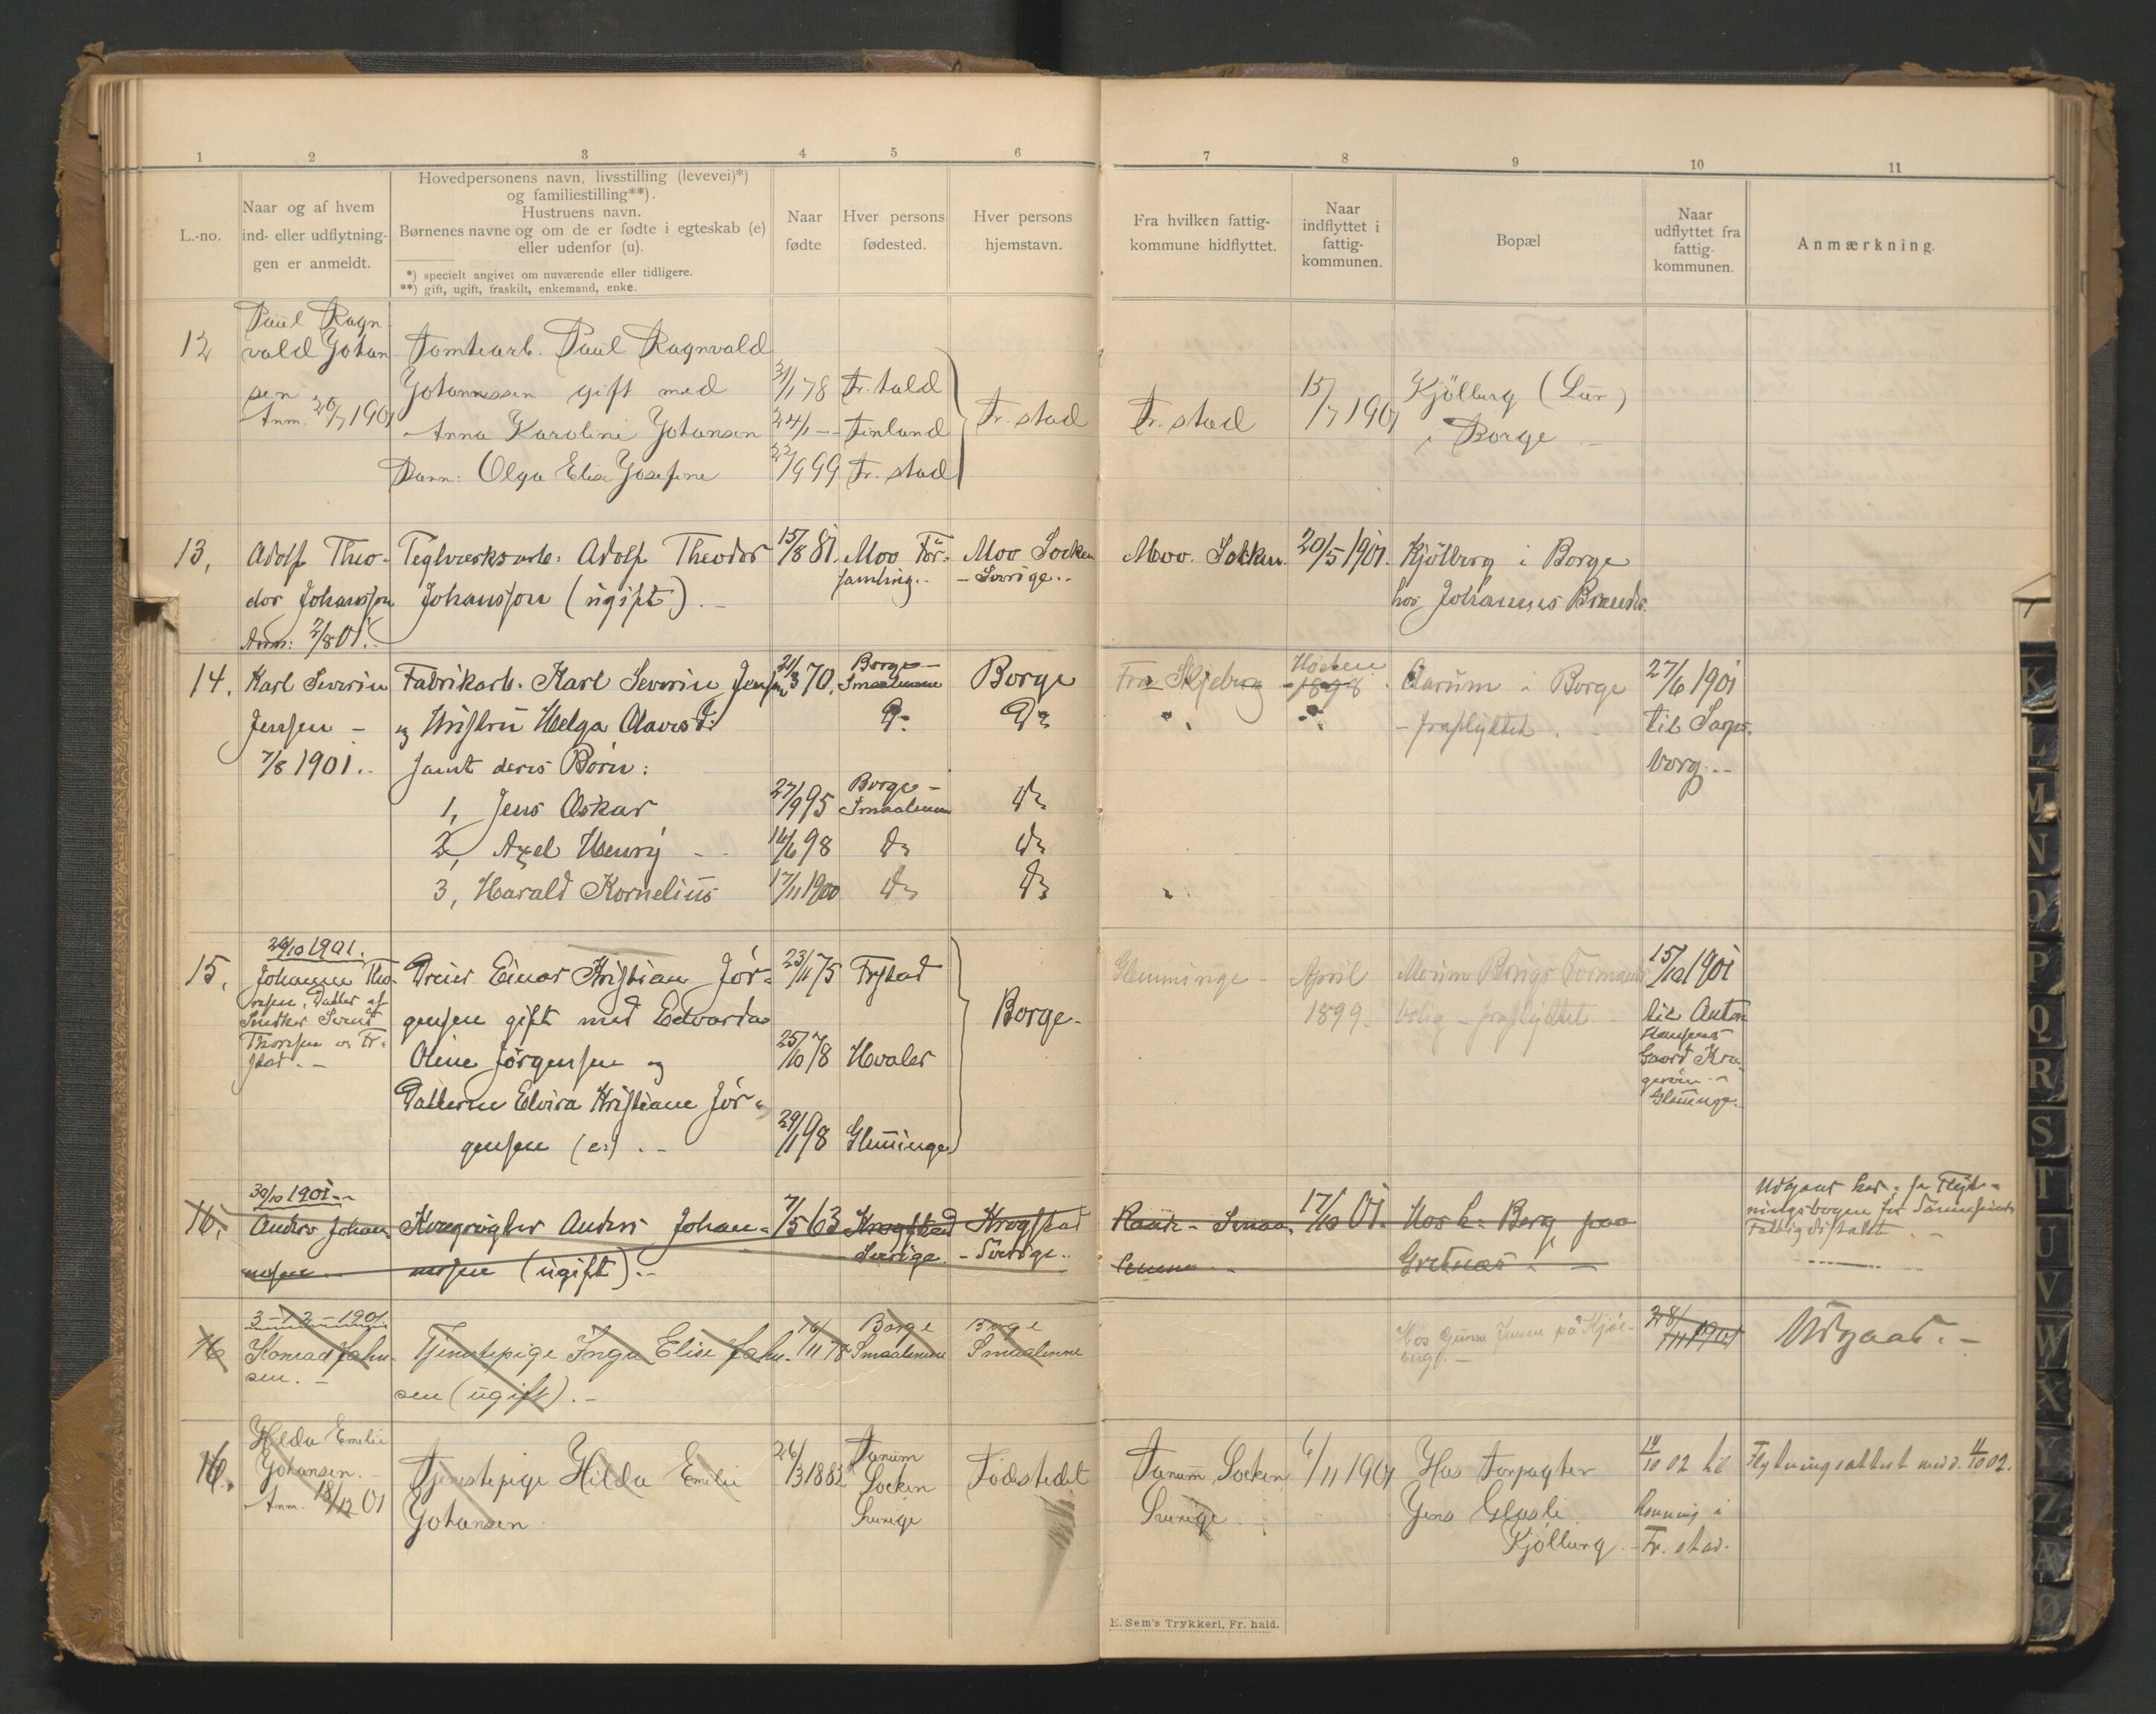 1 2 3 4 5 6 7 8 9 10 11
L.-no.
Naar og af hvem
ind- eller udflytnin-
gen er anmeldt.
Hovedpersonens navn, livsstilling (levevei)*)
og familiestilling**).
Hustruens navn.
Børnenes navne og om de er fødte i egteskab (e)
eller udenfor (u).
*) specielt angivet om nuværende eller tidligere.
**) gift, ugift, fraskilt, enkemand, enke.
Naar
fødte
Hver persons
fødested.
Hver persons
hjemstavn.
Fra hvilken fattig-
kommune hidflyttet.
Naar
indflyttet i
fattig-
kommunen.
Bopæl
Naar
udflyttet fra
fattig-
kommunen.
Anmærkning.
12
Paul Ragn-
vald Johan
sen
Anm. 26/7 1901
Tomtearb. Paul Ragnvald
Johannessen gift med 31/1 78 Fr.hald
Anna Karoline Johansen 24/1 -- Finland
Barn: Olga Elise Josefine 22/9 99 Fr. stad
Fr. stad
Fr. stad
15/7 1901
Kjölberg (Lur)
i Borge
13,
Adolf Theo-
dor Johansson
Anm: 2/8 01.
Teglværksarb. Adolf Theodor
Johansson (ugift).
15/8 81.
Moo För-
samling..
Moo Socken
- Sverige..
Moo. Socken.
20/5 1901.
Kjölberg i Borge
hos Johannes Brandt.
14.
Karl Severin
Jensen -
7/8 1901..
Fabrikarb. Karl Severin Jensen
og Hustru Helga Olavesd:
samt deres Børn:
1, Jens Oskar
2, Axel Henry
3, Harald Kornelius
21/3 70,
27/9 95
14/6 98
17/11 1900
Borge-
Smaalenene
Do
Borge-
Smaalenene
Do
Do
Borge
Do
Do
Do
Do
Fra Skjeberg
Høsten
1898.
Aarum i Borge
- fraflyttet.
27/6 1901
til Sarps-
borg..
15,
26/10 1901.
Johanne Tho-
resen, Datter af
Snedker Svend
Thoresen i Fr-
stad.
Dreier Einar Kristian Jör-
gensen gift med Edvarda
Oline Jörgensen og
Datteren Elvira Kristiane Jör-
gensen (e.)
23/11 75
25/10 78
29/1 98
Frstad
Hvaler
Glemminge
Borge-
Glemminge -
April
1899.
Bolig - fraflyttet
15/10 1901
til Anton
Hansens
Gaard Kra-
gerøen
Glemminge.
16,
30/10 1901
Anders Johan-
nesen
Kvægrögter Anders Johan-
nesen (ugift).
7/5 63
Krogstad
Sverige.
Krogstad
- Sverige..
Raade - Smaa-
lenene
17/10 01.
Hos L. Berg paa
Gretnæs
Udgaar her, se Flyt-
ningsbogen for
Fattigdistrikt
16
3-12-1901
Konrad Johan-
sen.
Tjenestepige Inga Elise Johan-
sen (ugift).
16/11 78
Borge
Smaalenene
Borge
Smaalenene
28/11 1901
Udgaar.
16.
Hilda Emilie
Johansen.
Anm. 18/12 01
Tjenestepige Hilda Emilie
Johansen
26/3 1882
Tanum
Socken
Sverige
Födestedet
Tanum Socken
Sverige
6/11 1901
Hos Forpagter
Jens Glasli
Kjölberg
14/10 02 til
Fr. stad.
Flytningsattest medd. 11/10 02.
E. Sem's Trykkeri, Fr. hald.
K
L
M
N
O
P
Q
R
S
T
U
V
W
X
Y
Z
Æ
Ø